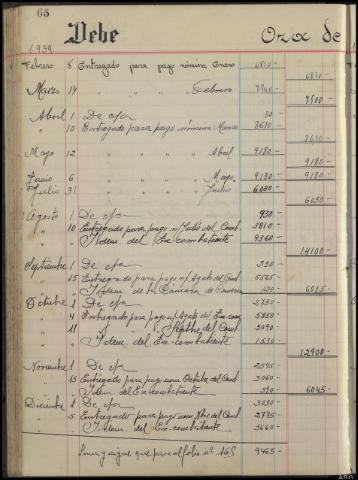 65
Debe Oro de
1939
Febrero 8 Entregado para pago nómina Enero 6810-
6810-
Marzo 14 " " " " Febrero 7500-
7500-
Abril 1 De cpa 50-
" 10 Entregado para pago nómina Marzo 8610-
8610-
Mayo 12 " " " " Abril 9180-
9180-
Junio 6 " " " " Mayo 9180- 9180-
Julio 31 " " " " Junio 6030-
6030-
Agosto 1 De cpa 930-
" 10 Entregado para pago n/ Julio del Comb. 3810-
" " Idem. del Ex-combatiente 9360-
14100-
Septiembre 1 De cpa 330-
" 15 Entregado para pago n/ Agsto del Comb. 5565-
" " Idem de la Cámara de 120- 6015-
Octubre 1 De cpa 2730-
" 4 Entregado para pago n/ Agsto del Ex-com. 5550-
" 11 " " " Septbre del Comb. 3090-
" " Idem. del Ex-combatiente 1530-
12900-
Noviembre 1 De cpa 2595-
" 15 Entregado para pago nom. Octubre del Comb. 3060-
" " Idem del Ex-combatiente 390- 6045-
Diciembre 1 De cpa 3030-
" 5 Entregado para pago nom. Nbre del Comb. 2775-
" " Idem. del Ex-combatiente 3660-
Suma y sigue que pasa al folio nº 165 9465-